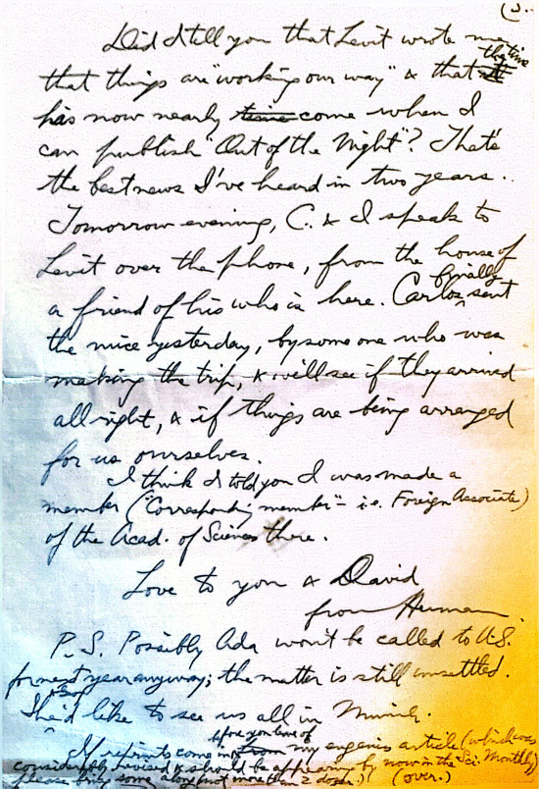 (3..
Did I tell you that Levit wrote me
that things are "working our way" & that the time
has now nearly time come when I
can publish "Out of the Night"? That's
the best news I've heard in two years..
Tomorrow evening, C. & I speak to
Levit over the phone, from the house of
a friend of his who is here. Carlos finally sent
the mice yesterday, by some one who was
making the trip, & will see if they arrived
all right, & if things are being arranged
for us ourselves.
I think I told you I was made a
member ("Corresponding member" - i.e. Foreign Associate)
of the Acad. of Sciences there.
Love to you & David
from Herman.
P.S. Possibly Ada won't be called to U.S.
for next year anyway; the matter is still unsettled.
She'd also like to see us all in Munich.
If reprints come before you leave of my eugenics article (which was
considerably revised & should be appearing by now in the Sci. Monthly)
please bring some along (not more than 2 dozen) (over.)